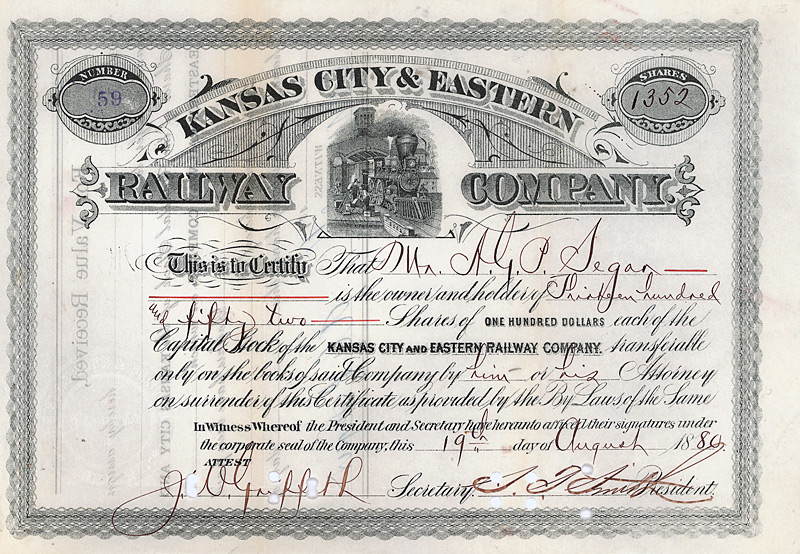 NUMBER
59
SHARES
1352
KANSAS CITY & EASTERN
RAILWAY COMPANY.
This is to Certify That Mr. A. G. P. Segar
is the owner and holder of Thirteen hundred
and fifty two Shares of ONE HUNDRED DOLLARS each of the
Capital Stock of the KANSAS CITY AND EASTERN RAILWAY COMPANY. transferable
only on the books of said Company by him or his Attorney
on surrender of this Certificate as provided by the By Laws of the Same
In Witness Whereof the President and Secretary have hereunto affixed their signatures under
the corporate seal of the Company, this 19th day of August 1880.
ATTEST
J. D. Griffith Secretary. President.
For Value Received,
WITNESS